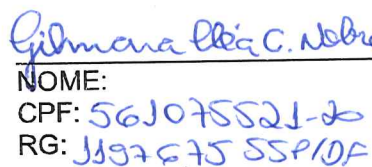 Gilmara Cléa C. Nobre
NOME:
CPF: 561075521-20
RG: 1197675 SSP/DF